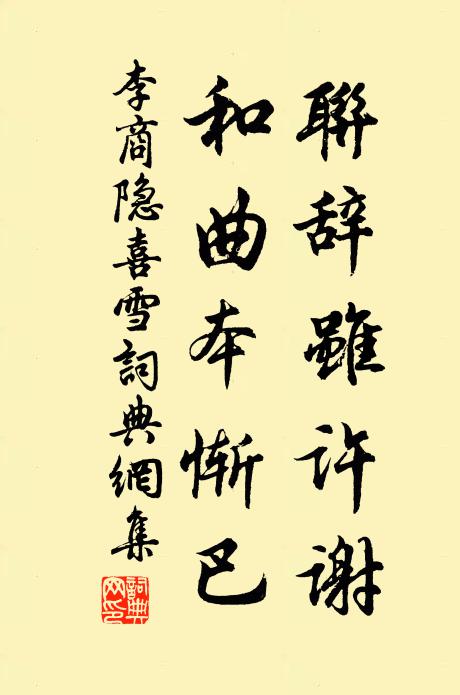 聯辞雖许謝
和曲本慚巴
李商隐喜雪詞典網集
詞典网印